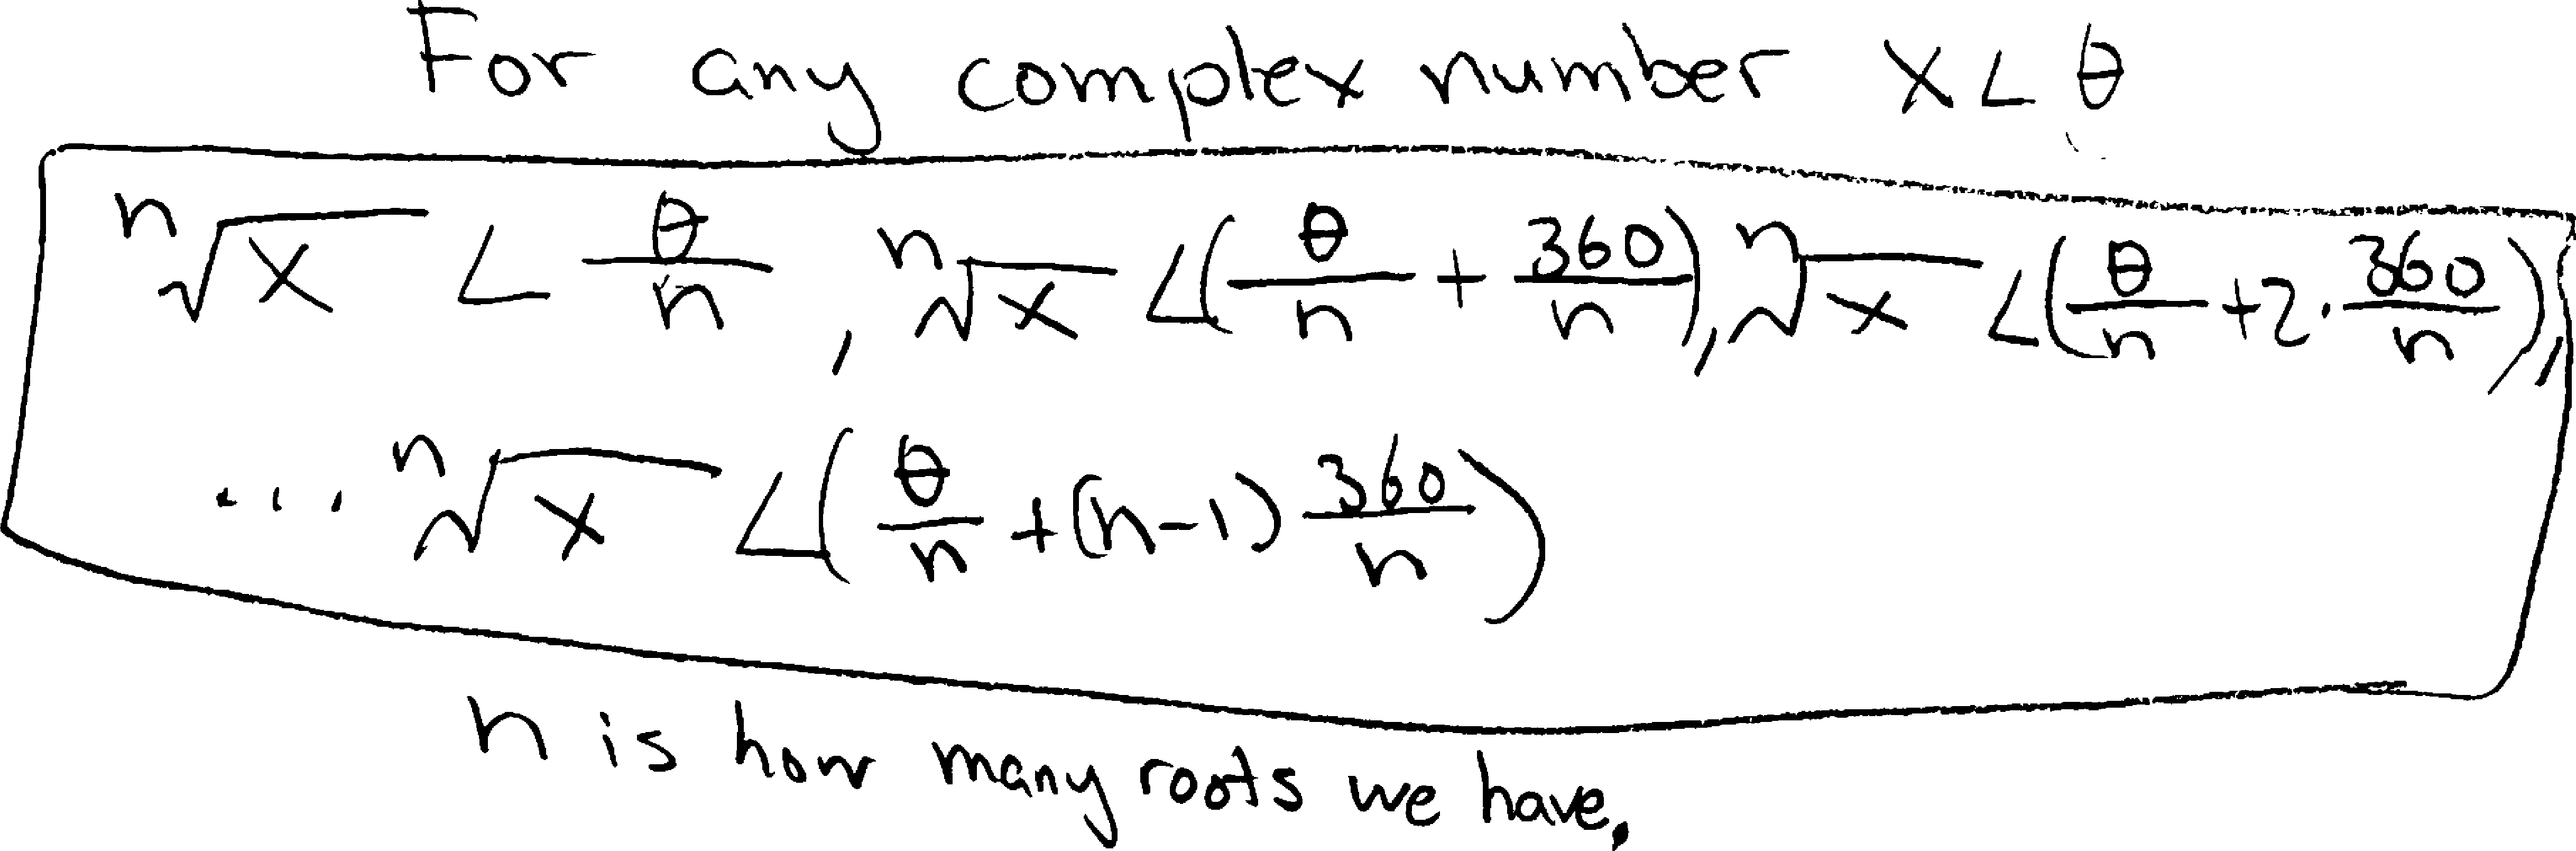 For any complex number x∠θ
ⁿ√x ∠ θ/n, ⁿ√x ∠(θ/n + 360/n), ⁿ√x ∠(θ/n + 2·360/n),
... ⁿ√x ∠(θ/n + (n-1) 360/n)
n is how many roots we have.